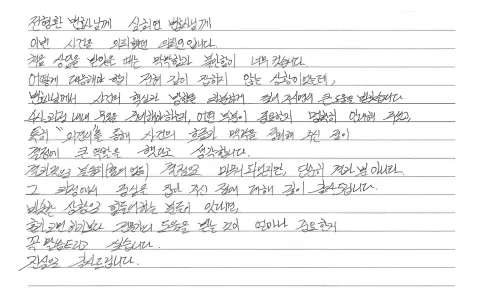 전현환 변호사님께 심희연 변호사님께
이번 사건을 의뢰했던 의뢰인입니다.
처음 상담을 받았을 때는 막막함과 불안함이 너무 컸습니다.
어떻게 대응해야 할지 전혀 감이 잡히지 않는 상황이었는데,
변호사님께서 사건의 핵심과 방향을 짚어주셔서 큰 도움을 받았습니다
수사 과정 내내 무엇을 준비해야하는지, 어떤 부분이 중요한지 안내해 주셨고,
특히 "의견서"를 통해 사건의 흐름과 맥락을 정리해 주신 점이
결정에 큰 역할을 했다고 생각합니다.
결과적으로 불송치(혐의 없음) 결정으로 마무리 되었지만, 단순히 결과 뿐 아니라
그 과정에서 중심을 잡아 주신 점에 대해 깊이 감사드립니다.
비슷한 상황으로 힘들어하는 분들이 있다면,
혼자 고민하기보다 전문가의 도움을 받는 것이 얼마나 중요한지
꼭 말씀드리고 싶습니다.
진심으로 감사드립니다.